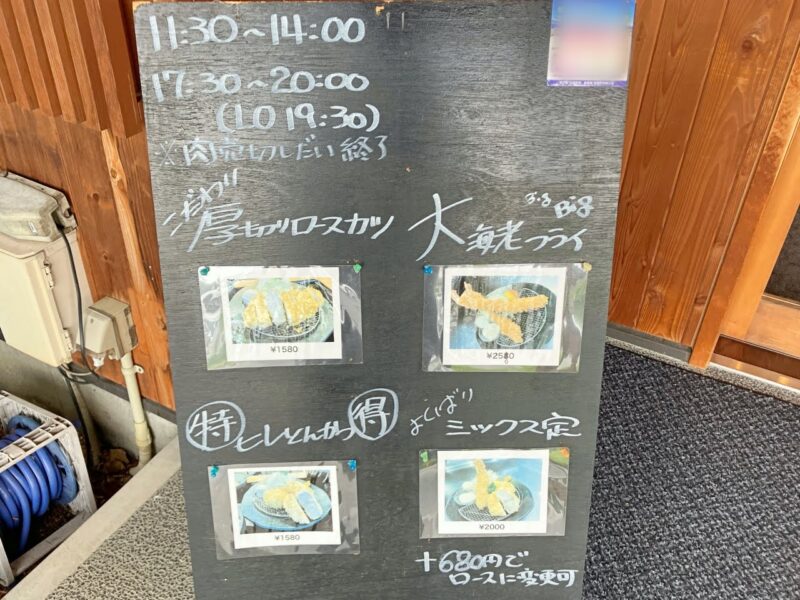 11:30~14:00
17:30~20:00
(LO 19:30)
※肉売切しだい終了
こだわり
厚切りロースカツ
¥1580
Big
大海老フライ
¥2580
特 ヒレとんかつ 得
¥1580
よくばり
ミックス定
¥2000
+680円で
ロースに変更可